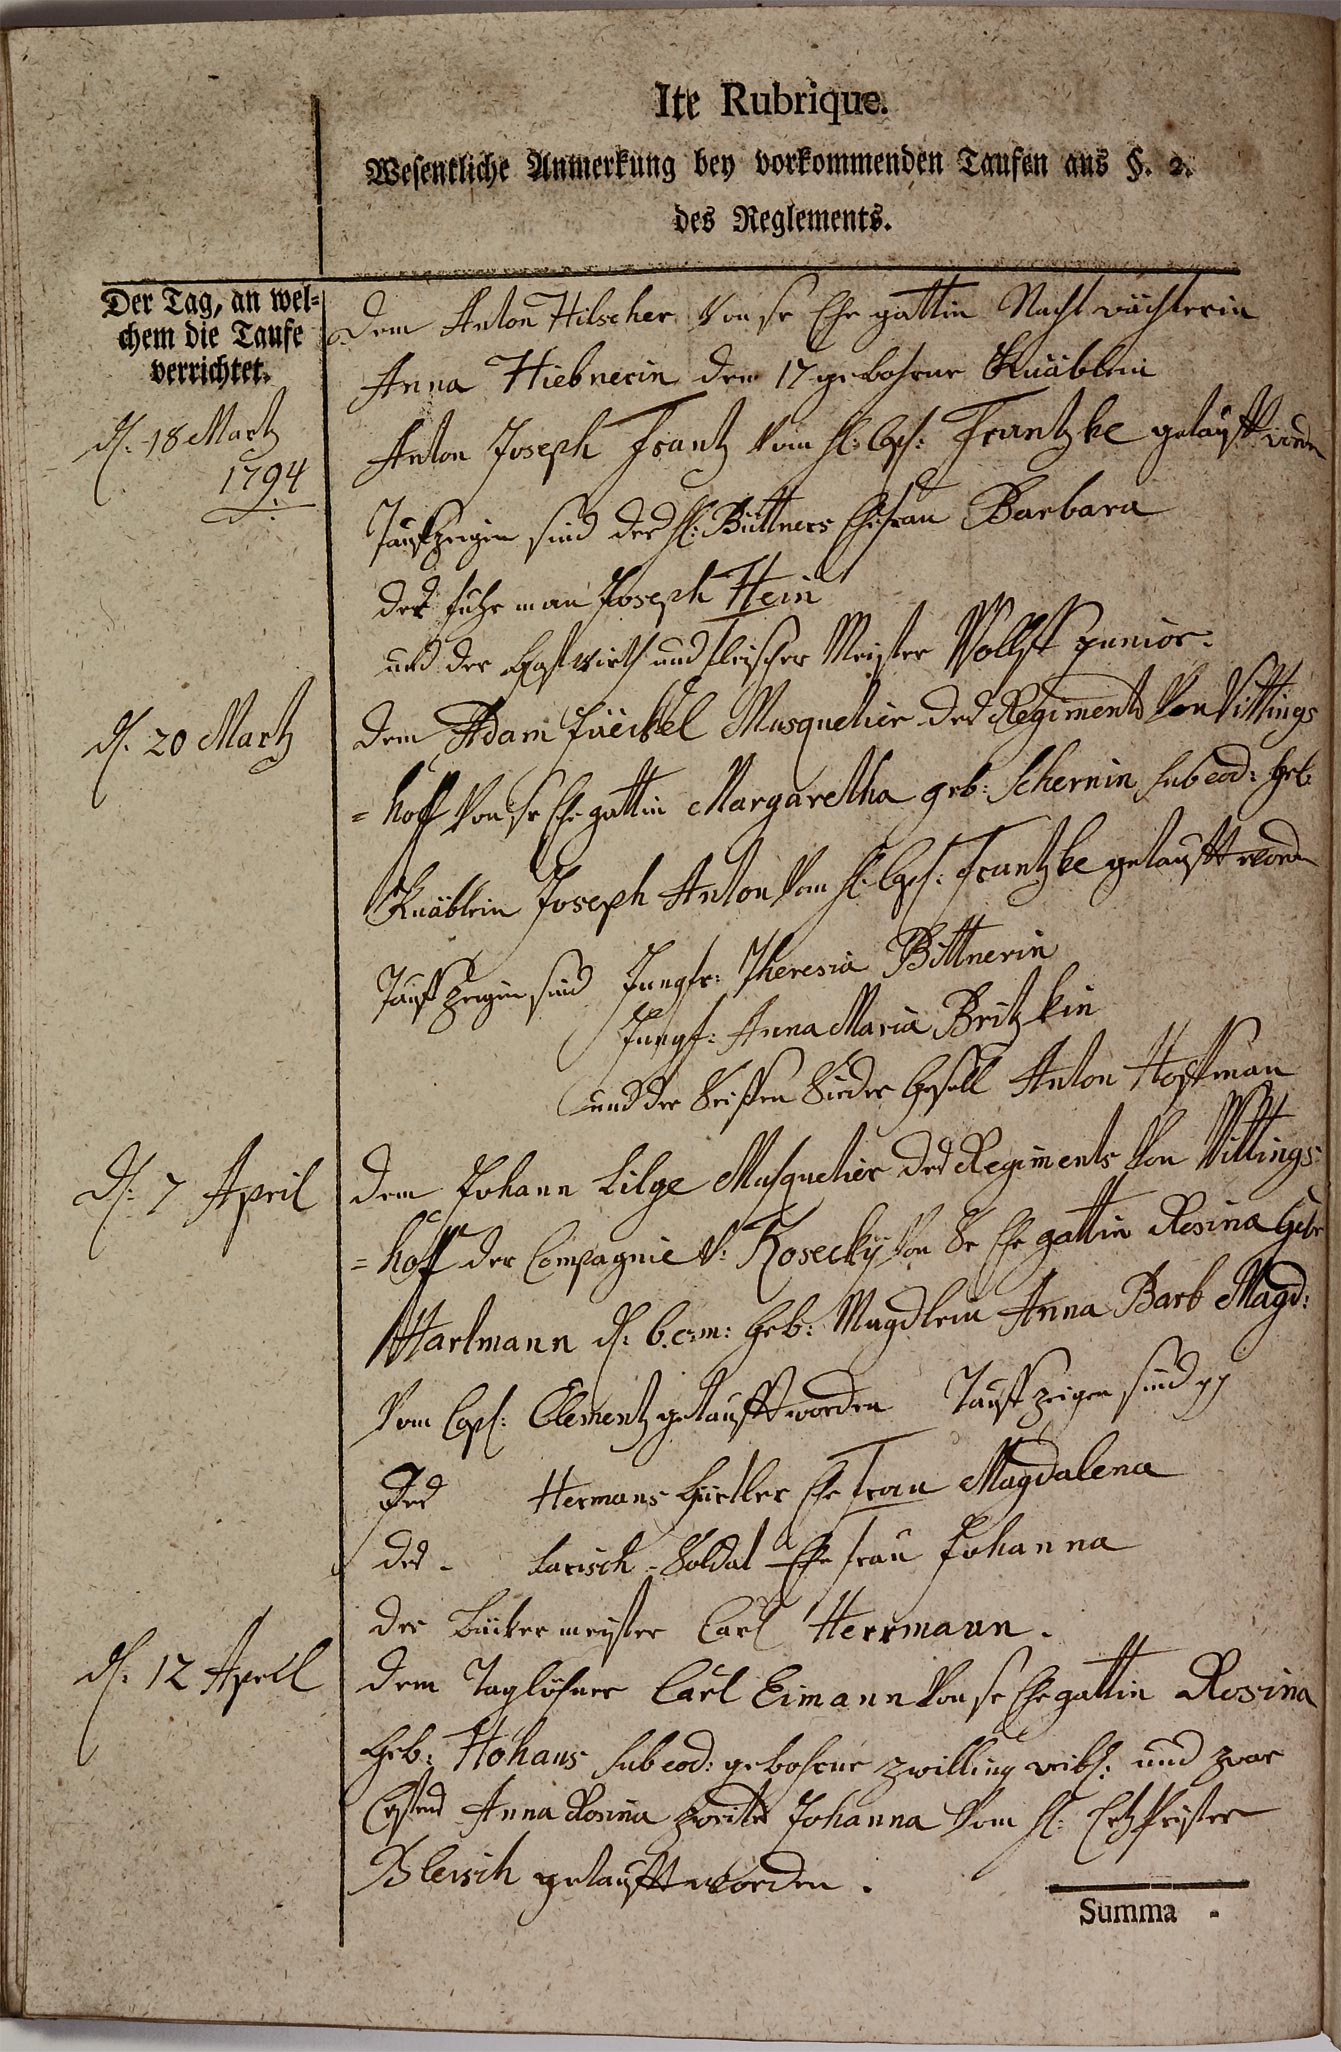 Ite Rubrique.
Wesentliche Anmerkung bey vorkommenden Taufen aus §. 2.
des Reglements.
Der Tag, an wel=
chem die Taufe
verrichtet.
d. 18 Martz
1794
Dem Anton Hilscher von sr Ehe gattin Nachtwächterin
Anna Hiebnerin den 17 gebohrne Knäblein
Anton Joseph Frantz vom H: Cap: Frantzke getaufft worden
Tauffzeigen sind des H: Büttners Ehefrau Barbara
der fuhrman Joseph Hein
und der Gastwirth und fleischer Meister Wollff junior.
d. 20 Martz
dem Adam Jäckel Musquetier des Regiments von Vittings
=hoff von sr Ehe gattin Margaretha geb: Schernin sub eod: geb
Knäblein Joseph Anton vom H: Cap: Frantzke getaufft worden
Tauff zeigen sind Jungfr: Theresia Bittnerin
Jungf: Anna Maria Britzkin
und der Seiffen Sieder Gesell Anton Hoffman
d. 7 April
dem Johann Lilge Musquetier des Regiments von Vittings
=hoff der Compagnie v: Kosecky von Sr Ehe gattin Rosina Geb
Hartmann d. 6. c: m: Geb: Magdlein Anna Barb Magd:
vom Cap: Clementz getaufft worden Tauff zeigen sind
Des Hermans Gürtler Ehe Frau Magdalena
des - Larisch - Soldat Ehe frau Johanna
der Bäcker meister Carl Herrmann.
d. 12 April
dem Taglöhner Carl Eimann von sr Ehe gattin Rosina
Geb: Hohaus sub eod: gebohrne zwilling weibl: und zwar
Erstens Anna Rosina zweite Johanna vom H: Ertz Prister
Blersch getaufft worden.
Summa -